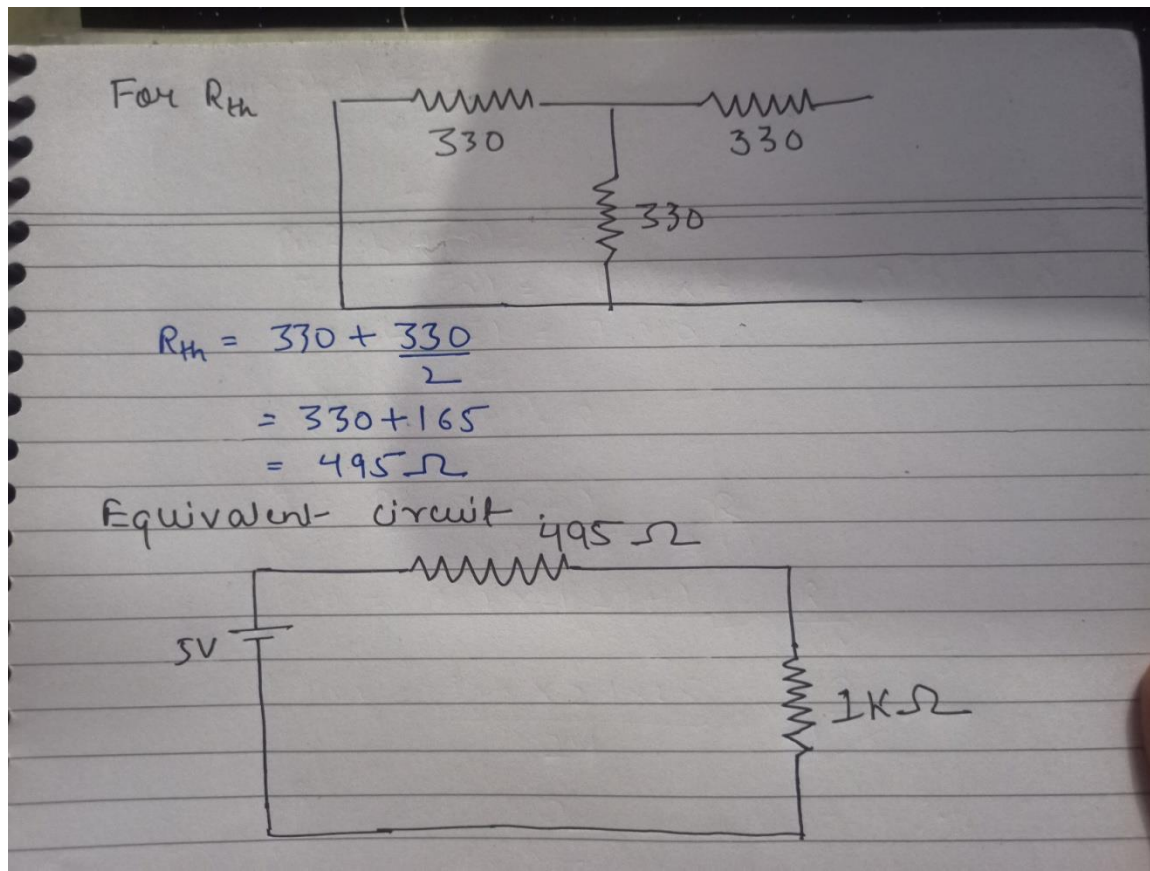 For Rth
330 330
330
Rth = 330 + 330/2
= 330+165
= 495 Ω
Equivalent circuit
495 Ω
5V
1KΩ